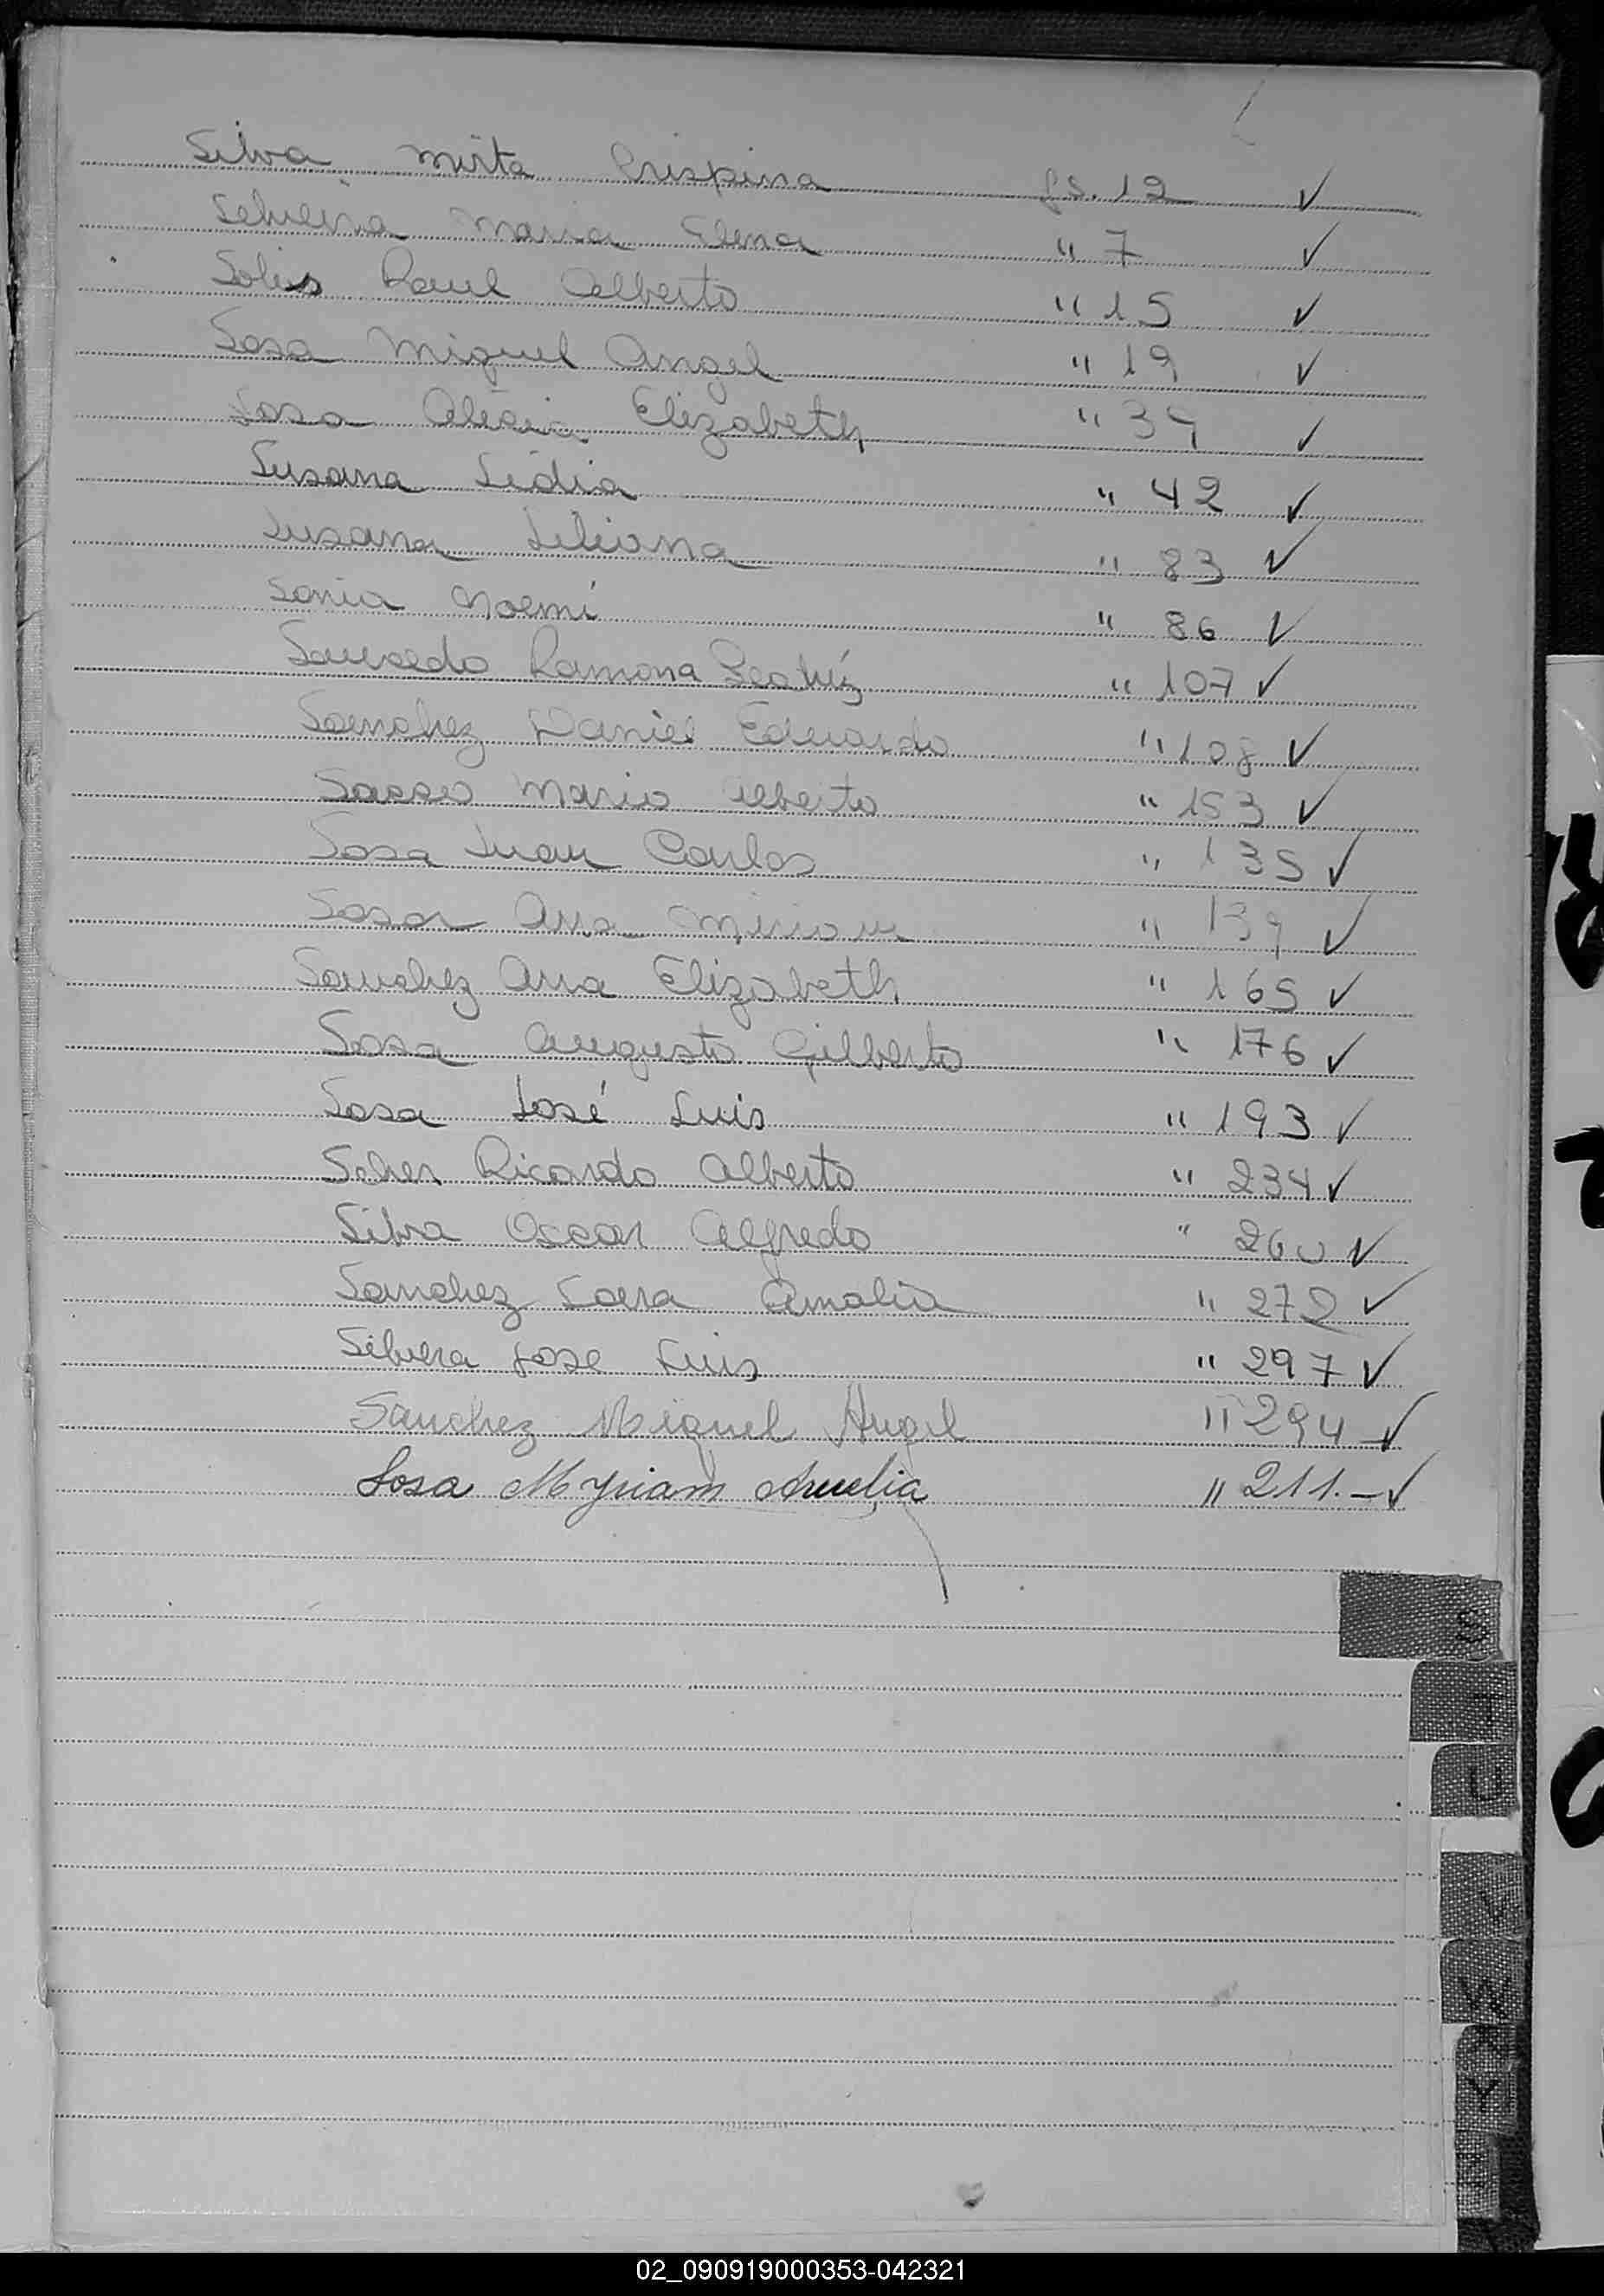 Silva Mirta Crispina fs. 12 ✓
Maria Elena " 7 ✓
Solis Raul Alberto " 15 ✓
Sosa Miguel Angel " 19 ✓
Sosa Alicia Elizabeth " 34 ✓
Susana Lidia " 42 ✓
Susana Liliana " 83 ✓
Sonia Noemí " 86 ✓
Saucedo Ramona Beatríz " 107 ✓
Sanchez Daniel Eduardo " 108 ✓
Mario Alberto " 153 ✓
Sosa Juan Carlos " 135 ✓
Sosa Ana Miriam " 139 ✓
Sanchez Ana Elizabeth " 165 ✓
Sosa Augusto Gilberto " 176 ✓
Sosa José Luis " 193 ✓
Scher Ricardo Alberto " 234 ✓
Silva Oscar Alfredo " 260 ✓
Sanchez Sara Amalia " 272 ✓
Silvera Jose Luis " 297 ✓
Sanchez Miguel Angel " 294 - ✓
Sosa Myriam Amelia " 211.- ✓
S
T
U
V
W
Y
02_090919000353-042321